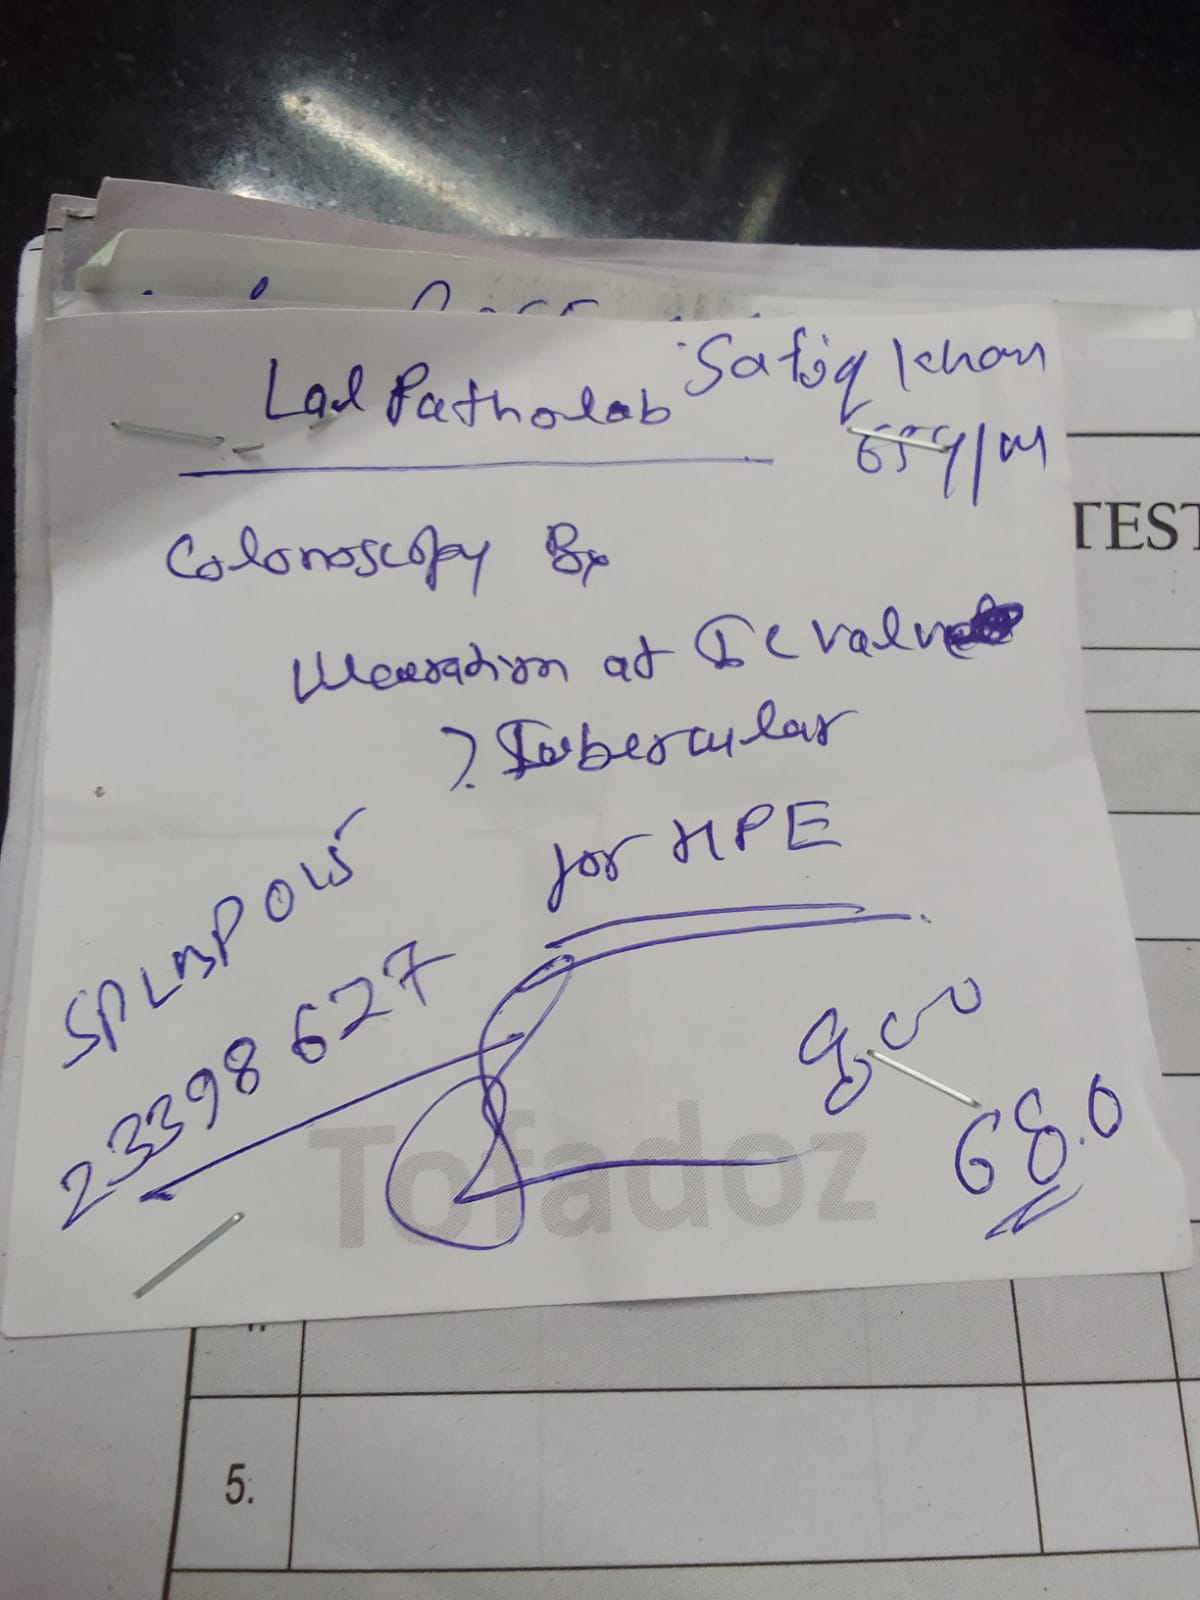 Lal Patholab
Safiq Khan
65Y/M
Colonoscopy Bx
Ulceration at IC valve
? Tubercular
for HPE
23398627
900
68.0
Tofadoz
TEST
5.